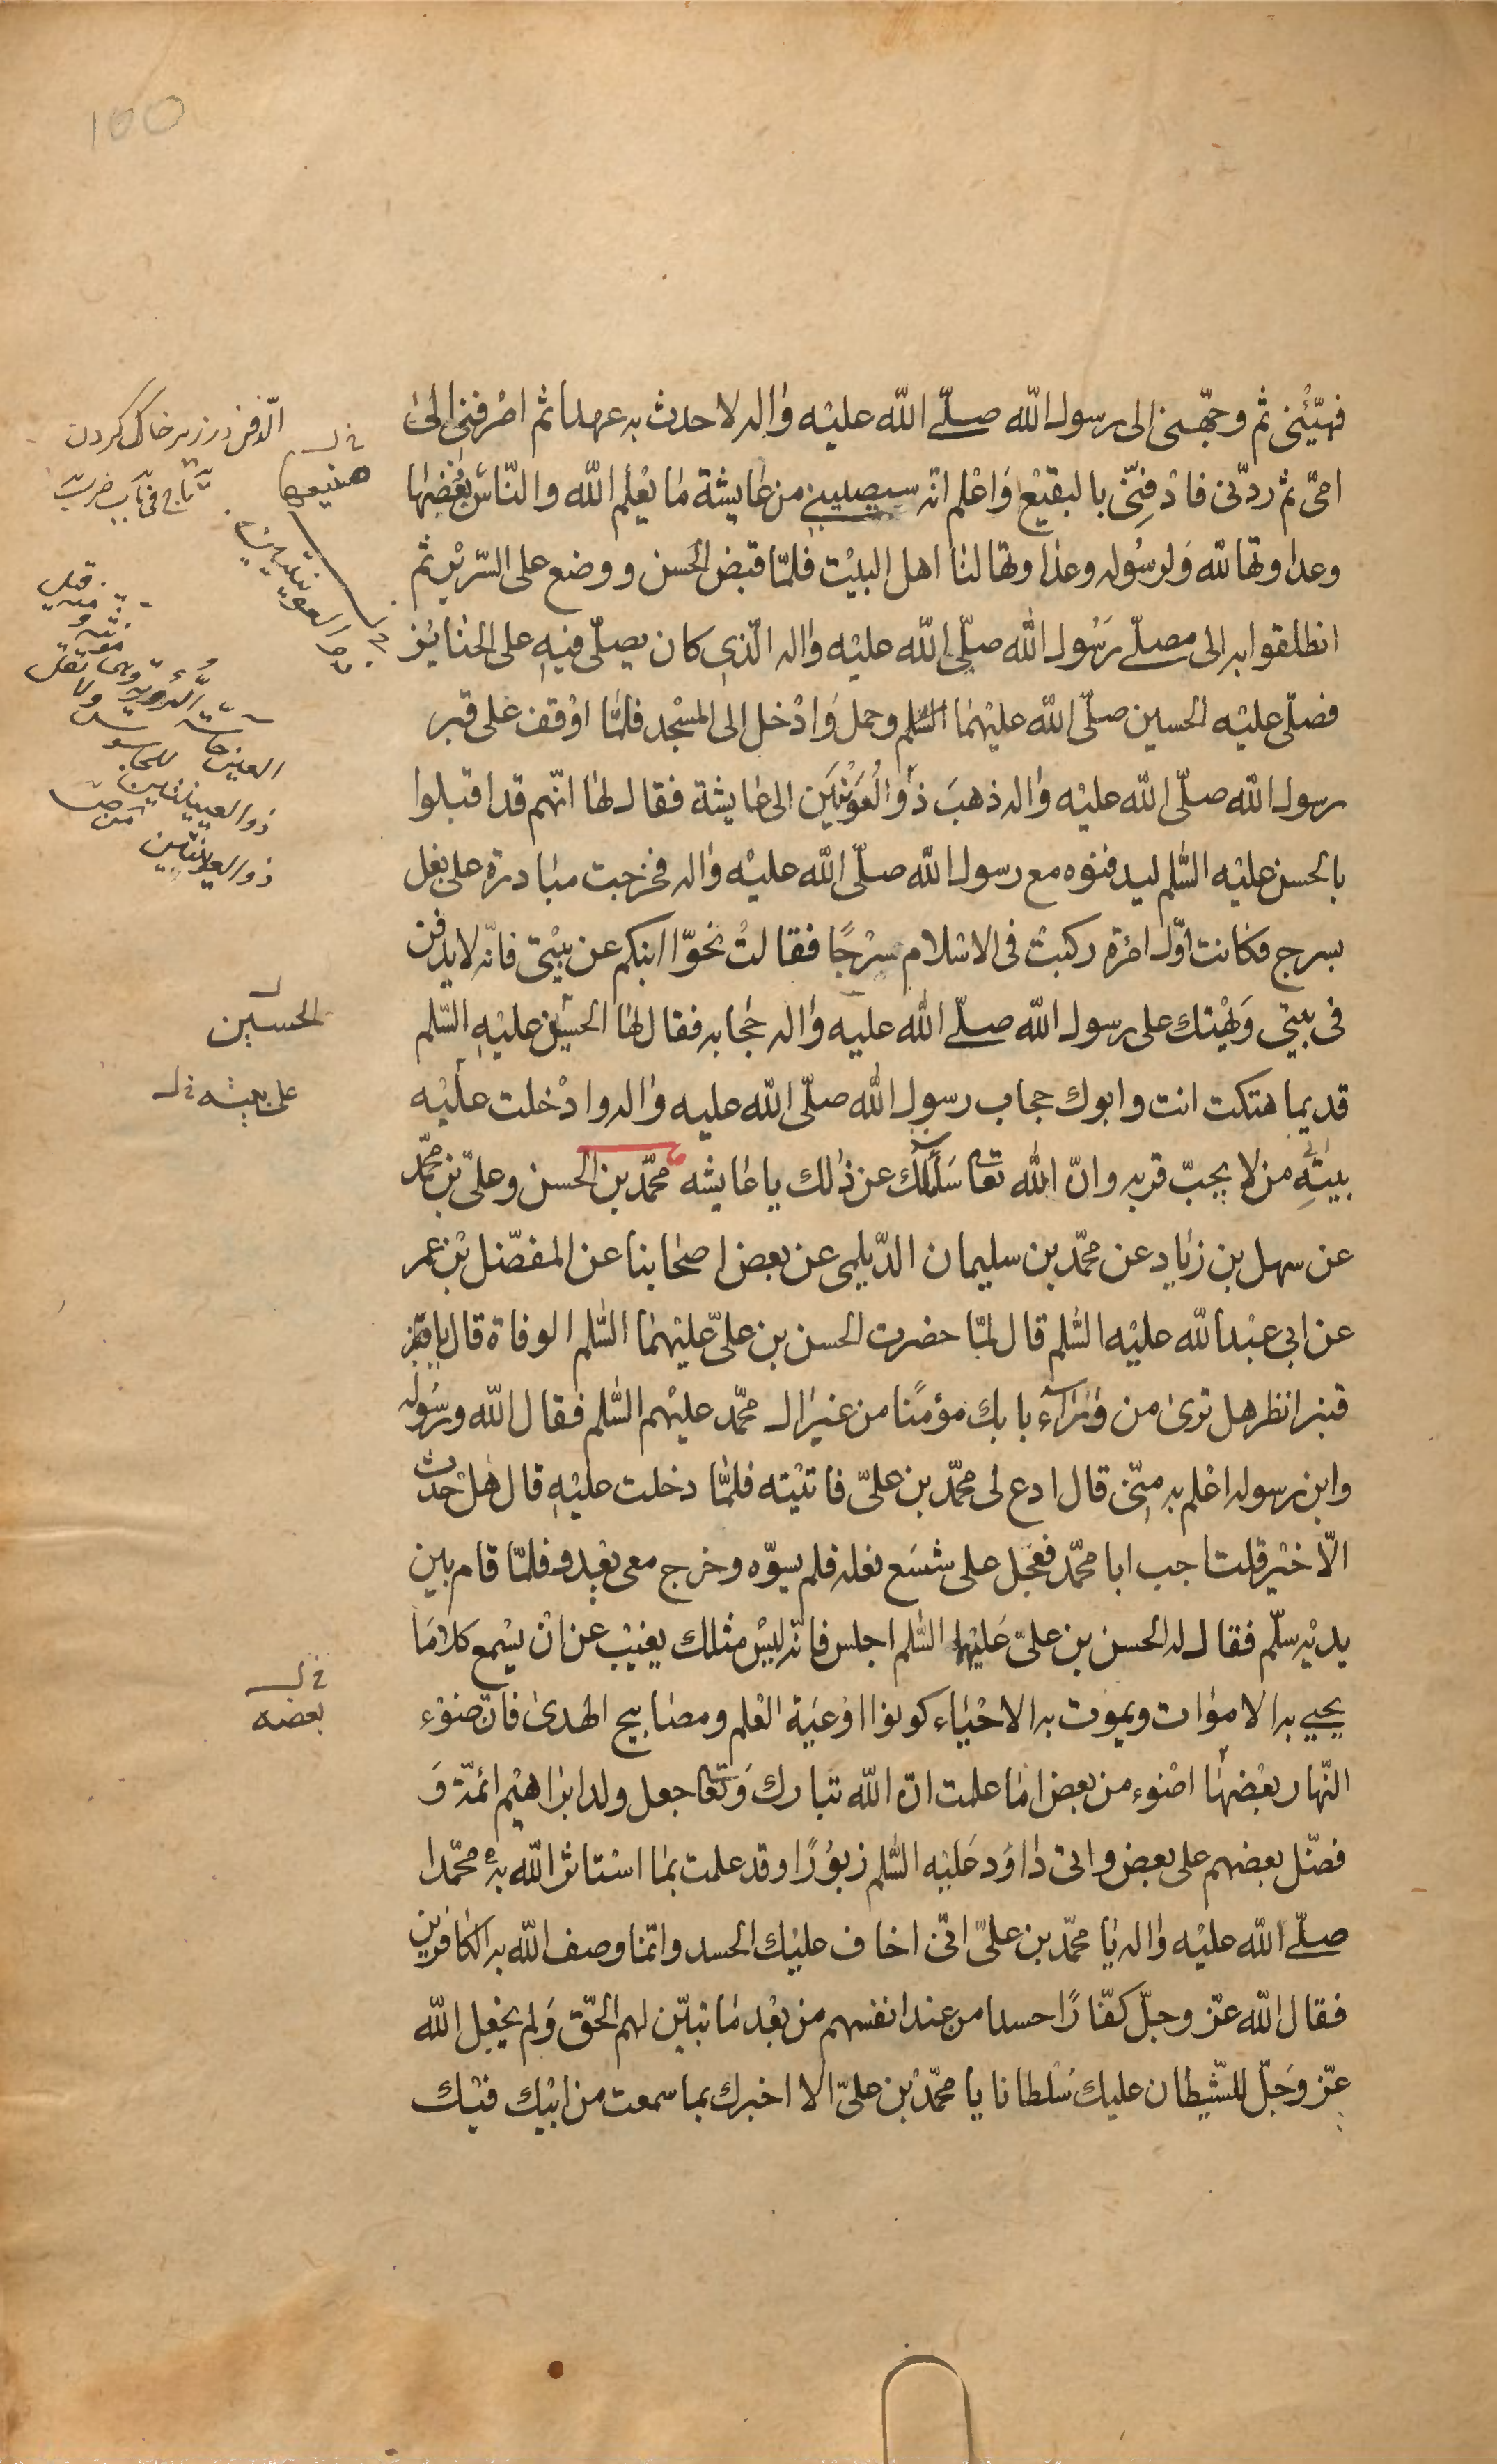 100
فهيّئنى ثم وجّهنى الى رسول الله صلّى الله عليه واله لاحدث به عهدا ثم اصرفنى الى
امى ثم ردّنى فادفنّى بالبقيع واعلم انه سيصيبنى من عايشة ما يعلم الله والناس بغضها
وعداوتها لله ولرسوله وعداوتها لنا اهل البيت فلمّا قبض الحسن ووضع على السّرير ثم
انطلقوا به الى مصلّى رسول الله صلّى الله عليه واله الّذى كان يصلّى فيه على الجنايز
فصلّى عليه الحسين صلّى الله عليهما السّلم وحمل وادخل الى المسجد فلمّا اوقف على قبر
رسول الله صلّى الله عليه واله ذهب ذو العوينتين الى عايشة فقال لها انّهم قد اقبلوا
بالحسن عليه السّلم ليدفنوه مع رسول الله صلّى الله عليه واله فخرجت مبادرة على بغل
بسرج فكانت اوّل امرئة ركبت فى الاسلام سرجًا فقالت نحّوا ابنكم عن بيتى فانّه لا يدفن
فى بيتى ويهتك على رسول الله صلّى الله عليه واله حجابه فقال لها الحسين عليه السّلم
قديما هتكت انت وابوك حجاب رسول الله صلّى الله عليه واله وادخلت عليه
بيته من لا يحبّ قربه وانّ الله تعا سائلك عن ذلك يا عايشه محمّد بن الحسن وعلىّ بن محمّد
عن سهل بن زياد عن محمّد بن سليمان الدّيلمى عن بعض اصحابنا عن المفضّل بن عمر
عن ابى عبدالله عليه السّلم قال لمّا حضرت الحسن بن علىّ عليهما السّلم الوفاة قال يا قنبر
قنبر انظر هل ترى من وراء بابك مؤمنًا من غير ال محمّد عليهم السّلم فقال الله ورسوله
وابن رسوله اعلم به منّى قال ادع لى محمّد بن علىّ فاتيته فلمّا دخلت عليه قال هل حدث
الّا خير قلت اجب ابا محمّد فعجل على شسع نعله فلم يسوّه وخرج معى يعدو فلمّا قام بين
يديه سلّم فقال له الحسن بن علىّ عليهما السّلم اجلس فانّه ليس مثلك يغيب عن ان يسمع كلاما
يحيى به الاموات ويموت به الاحياء كونوا اوعية العلم ومصابيح الهدى فانّ ضوء
النّهار بعضها اضوء من بعض اما علمت انّ الله تبارك وتعا جعل ولد ابراهيم ائمّة و
فضّل بعضهم على بعض واتى داود عليه السّلم زبورًا وقد علمت بما استاثر الله به محمّدا
صلّى الله عليه واله يا محمّد بن علىّ انّى اخاف عليك الحسد وانّما وصف الله به الكافرين
فقال الله عزّ وجلّ كفّارًا حسدا من عند انفسهم من بعد ما تبيّن لهم الحقّ ولم يجعل الله
عزّ وجلّ للشّيطان عليك سلطانا يا محمّد بن علىّ الا اخبرك بما سمعت من ابيك فيك
الدفن در زير خاك كردن
صنيعها
ذو العوينتين
الحسين
على بغلة
بعضه